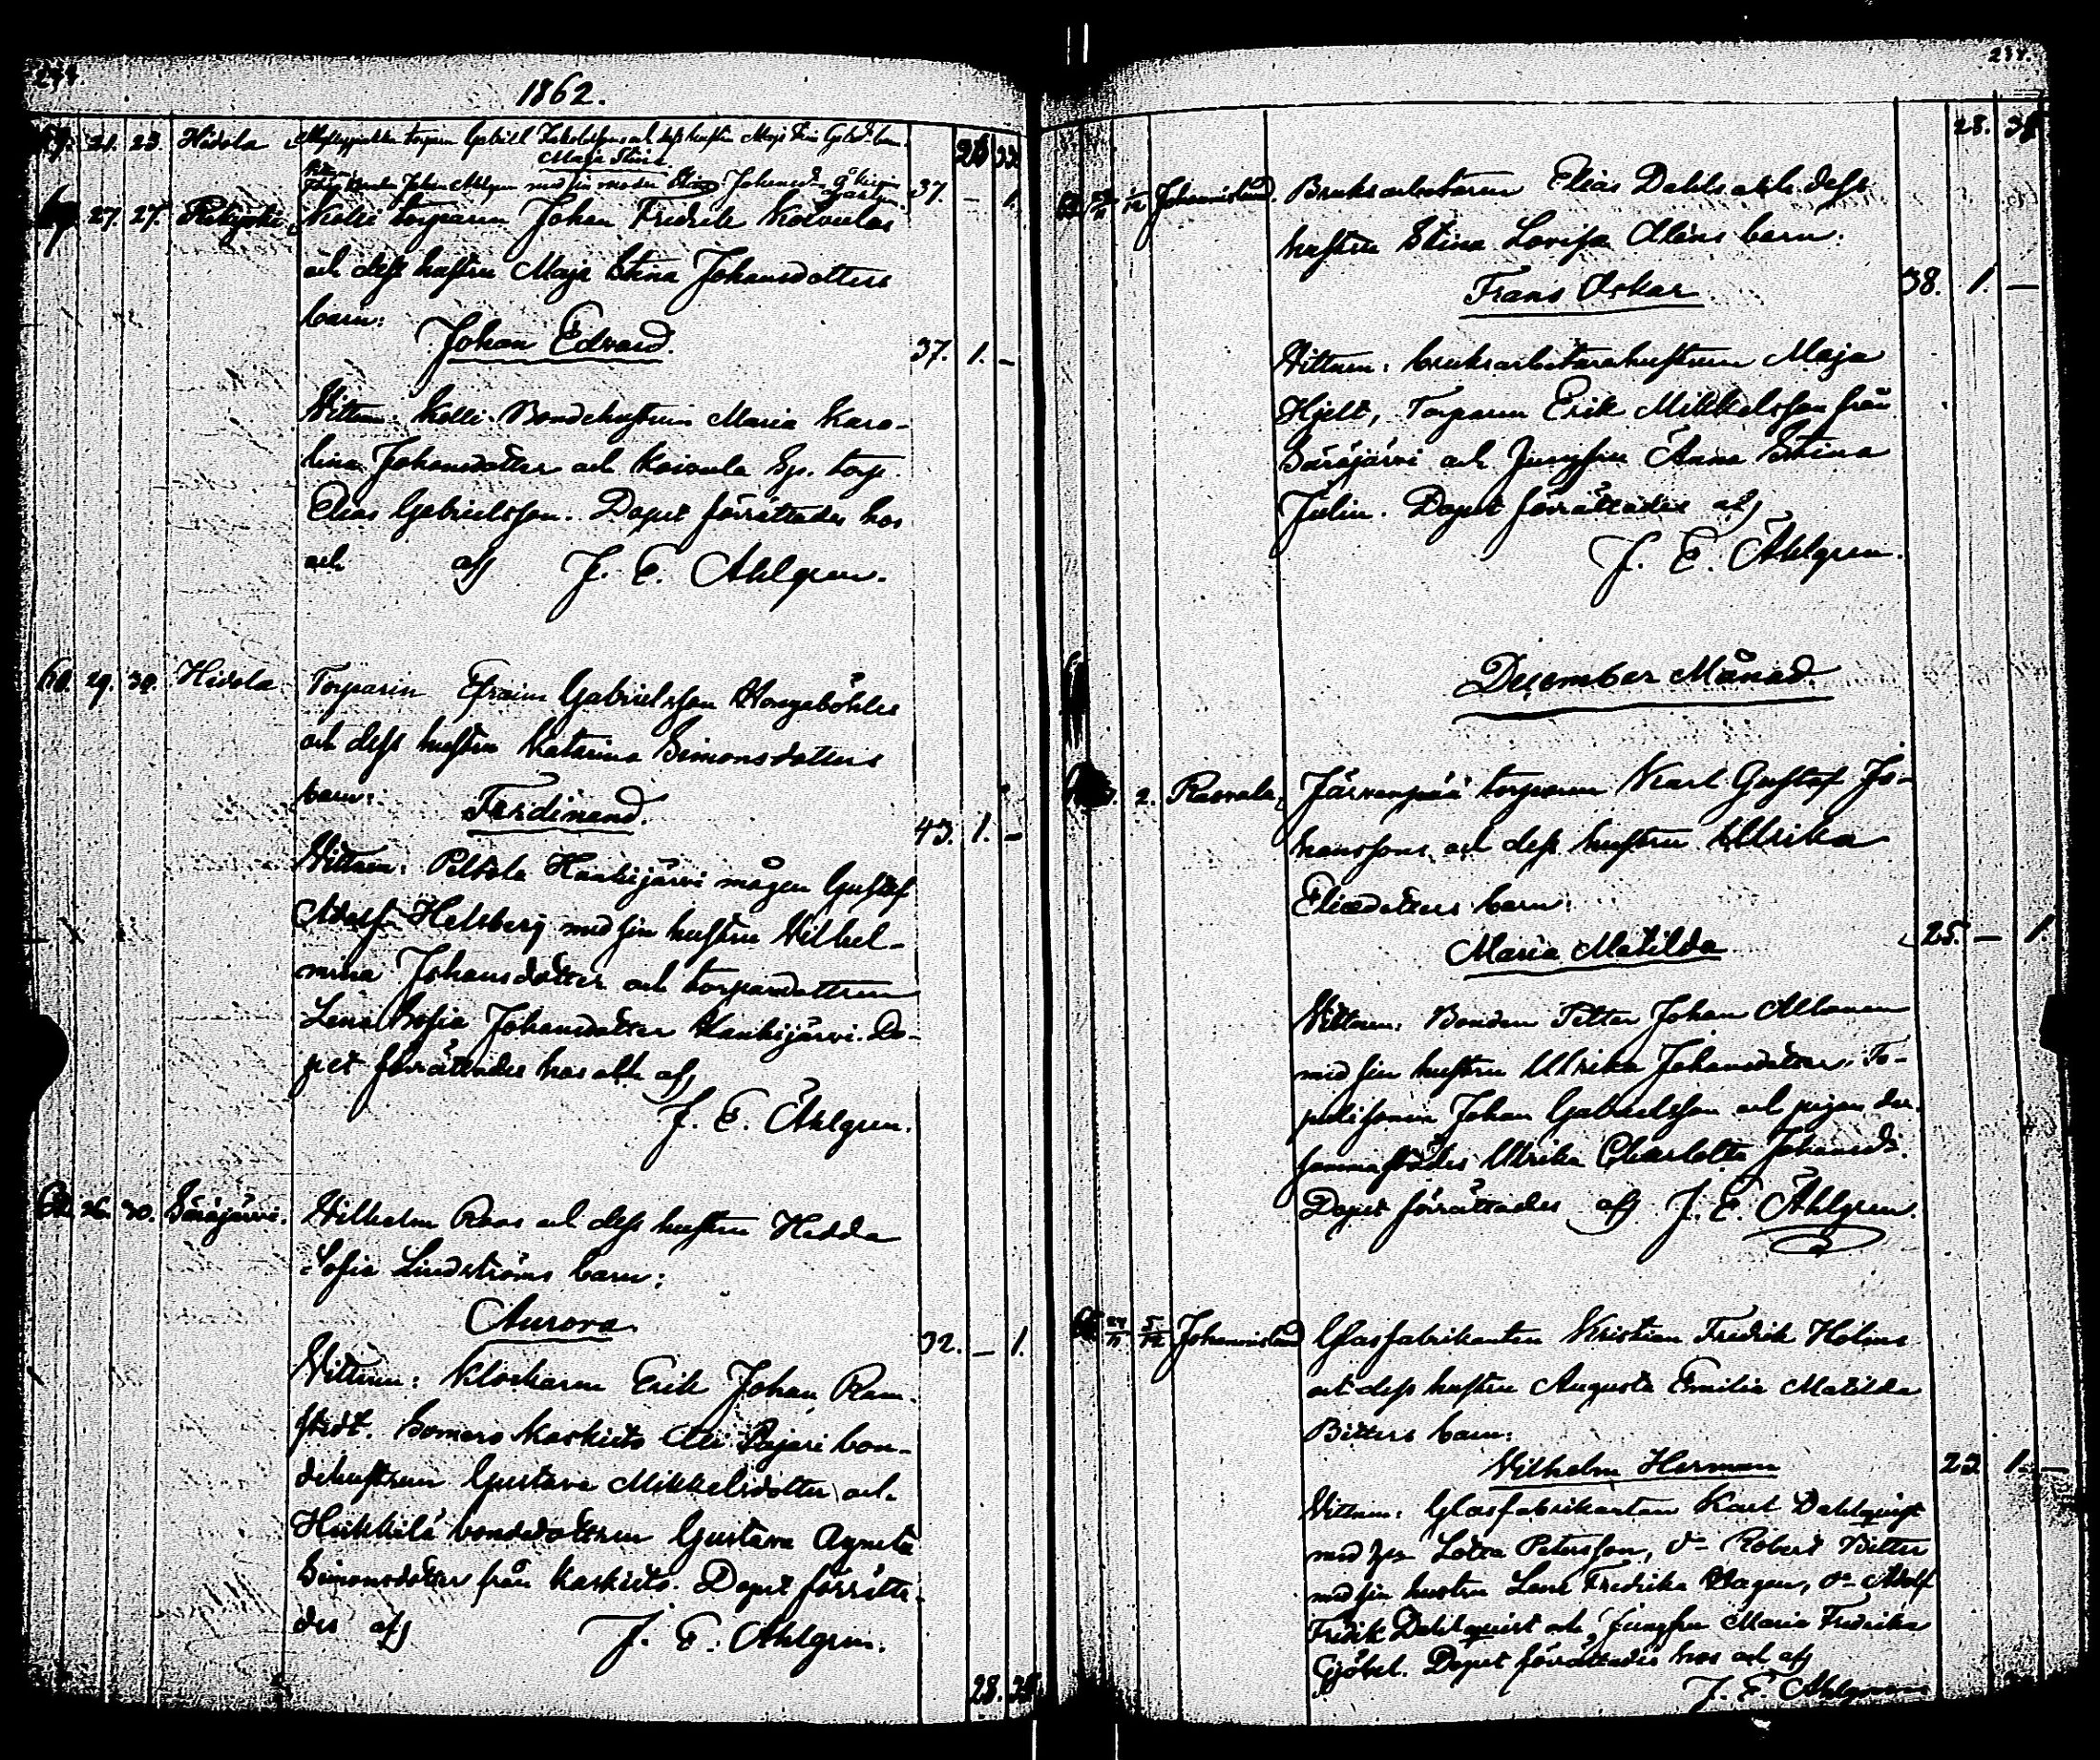 1862.
21. 23. Hidola torparen Gabriel
Maja Stina
37. – 1.
27. 27. Kolli torparen Johan Fredrik Koivulas
och dess hustru Maja Stina Johansdotters
barn:
Johan Edvard. 37. 1. –
Vittnen: Kolli Bondehustrun Maria Karo-
lina Johansdotter och Koivula Sp. torp.
Elias Gabrielsson. Dopet förrättades hos
och af J. E. Ahlgren.
60. 29. 30. Hidola Torparen Efraim Gabrielsson
och dess hustru Katarina Simonsdotters
barn:
Ferdinand. 43. 1. –
Vittnen: Peltola Hanhijärvi mågen Gustaf
Adolf Helsberg med sin hustru Vilhel-
mina Johansdotter och torparedottren
Lena Sofia Johansdotter Hanhijärvi. Do-
pet förrättades hos och af
J. E. Ahlgren.
26. 30. Säräjärvi. Vilhelm Roos och dess hustru Hedda
Sofia Lindströms barn:
Aurora 32. – 1.
Vittnen: Klockaren Erik Johan Ram-
stedt. Somero Kaskisto Ali Pajari bon-
dehustrun Gustava Mikkelsdotter och
Heikkilä bondedottren Gustava Agneta
Simonsdotter från Kaskisto. Dopet förrätta-
des af J. E. Ahlgren.
28.
237.
28.
Johannislund. Bruksarbetaren Elias Dahls och dess
hustru Stina Lovisa Aléns barn:
Frans Oskar 38. 1. –
Vittnen: bruksarbetarehustrun Maja
Hjelt, Torparen Erik Mikkelsson från
Säräjärvi och Jungfru Anna Stina
Julin. Dopet förrättades af
J. E. Ahlgren.
December Månad.
2. Rasvala, Järvenpää torparen Karl Gustaf Jo-
hanssons och dess hustru Ulrika
Eliedotters barn:
Maria Matilda 25. – 1.
Vittnen: Bonden Petter Johan Allonen
med sin hustru Ulrika Johansdotter, To-
Johan Gabrielsson och pigan der-
sammastädes Ulrika Charlotta Johansd:r.
Dopet förrättades af J. E. Ahlgren.
24/11 5/12 Johannislund Glasfabrikanten Kristian Fredrik Holms
och dess hustru Augusta Emilia Matilda
Bitters barn:
Vilhelm Herman 23 1. –
Vittnen: Glasfabrikanten Karl Dahlquist
med Lotta Petersson, d:o Robert Bitter
med sin hustru Lena Fredrika Hagen, d:o Adolf
Fredrik Dahlquist och jungfru Maria Fredrika
Gjöbel. Dopet förrättades hos och af
J. E. Ahlgren